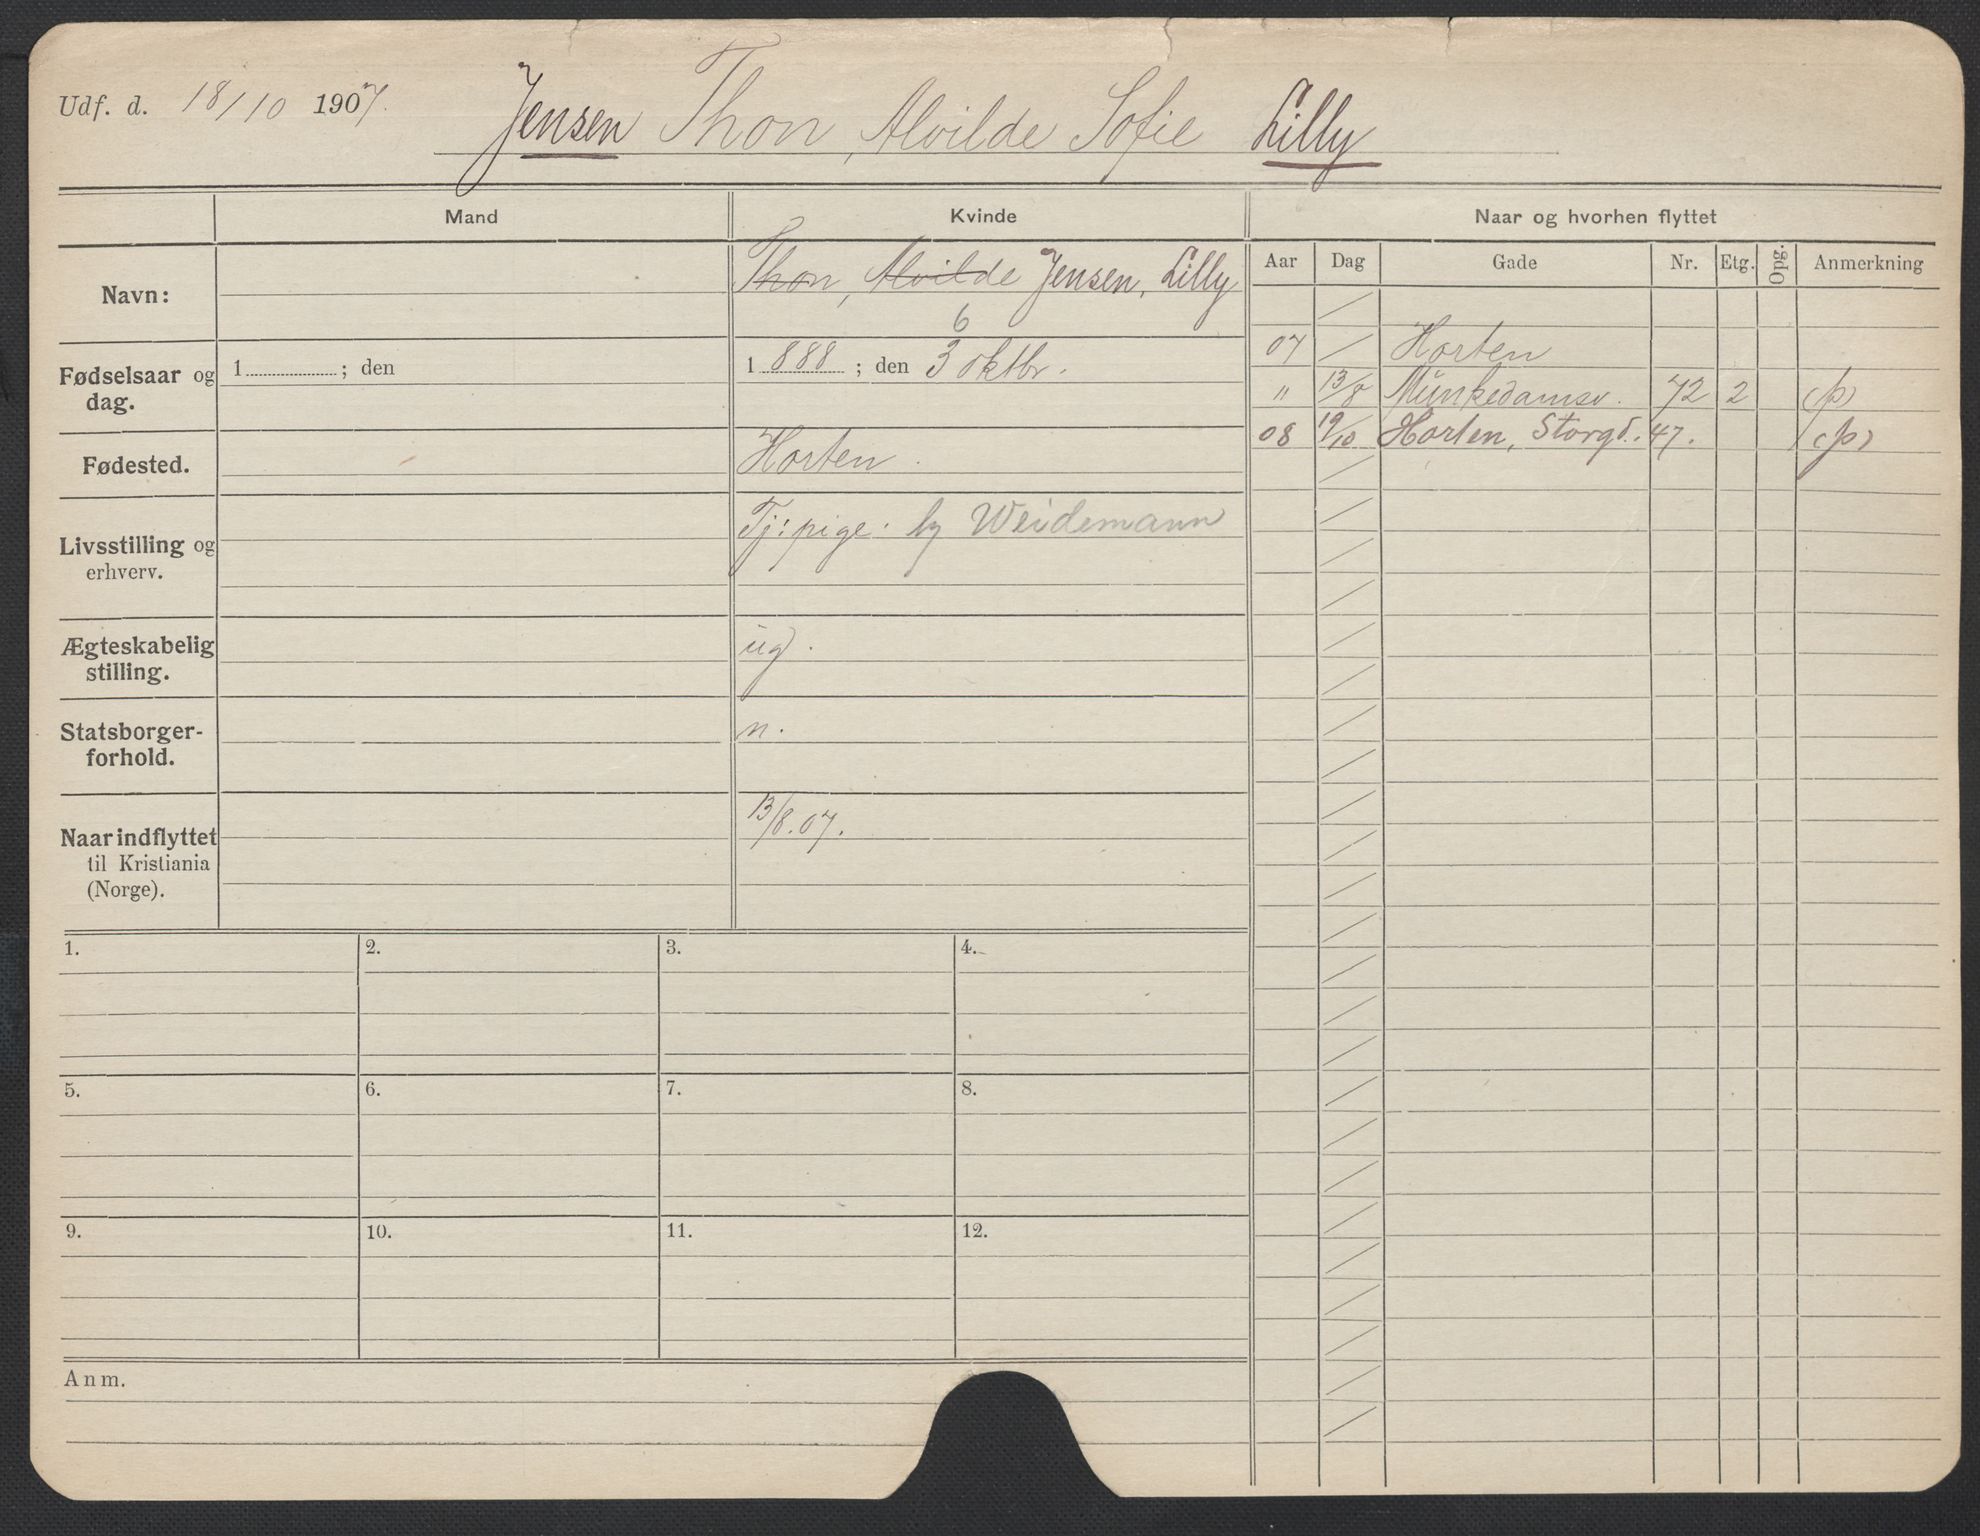 Udf. d. 18/10 1907.
Jensen Thon, Alvilde Sofie Lilly
Mand Kvinde Naar og hvorhen flyttet
Aar Dag Gade Nr. Etg. Opg. Anmerkning
Navn: Thon, Alvilde Jensen, Lilly
6
Fødselsaar og dag. 1 ; den 1 888 ; den 3 oktbr.
07 Horten
" 13/8 Munkedamsv. 72 2 (p)
08 19/10 Horten, Storgd. 47. (p)
Fødested. Horten.
Livsstilling og erhverv. Tj: pige: hg Weidemann
Ægteskabelig stilling. ug.
Statsborger-
forhold. n.
Naar indflyttet
til Kristiania
(Norge). 13/8.07.
1. 2. 3. 4.
5. 6. 7. 8.
9. 10. 11. 12.
Anm.